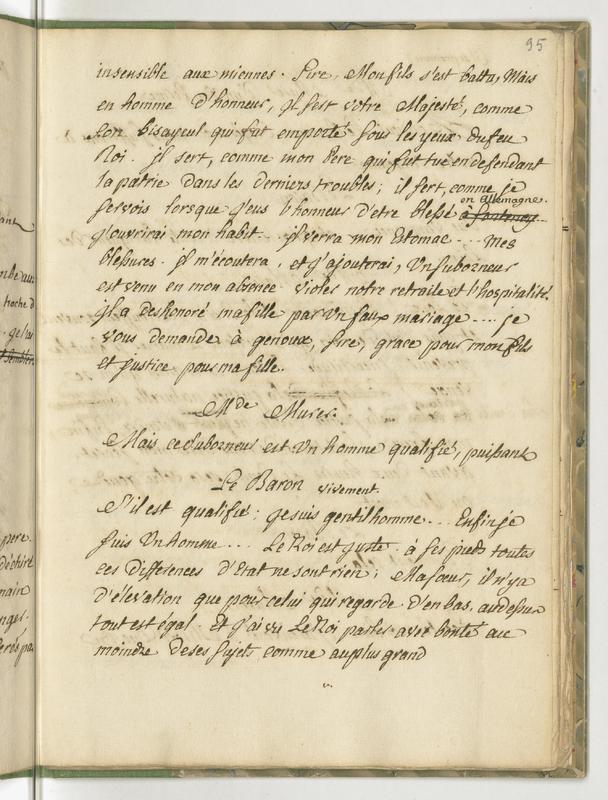 95
insensible aux miennes. Sire, Mon fils s'est battu, Mais
en homme d'honneur, il sert votre Majesté, comme
son bisayeul qui fut emporté sous les yeux du feu
Roi. il sert, comme mon Pere qui fut tué en defendant
la patrie dans les derniers troubles; il sert, comme je
en Allemagne.
servois lorsque j'eus l'honneur d'etre blessé à fontenoy
j'ouvrirai mon habit... il verra mon Estomac... Mes
blessures. il m'écoutera, et j'ajouterai, Un suborneur
est venu en mon absence violer notre retraite et l'hospitalité.
il a deshonoré ma fille par Un faux mariage.... je
vous demande à genoux, sire, grace pour mon fils
et justice pour ma fille.
Mde Murer.
Mais ce suborneur est Un homme qualifié, puissant
Le Baron vivement.
S'il est qualifié; je suis gentilhomme... Enfin je
suis Un homme... Le Roi est juste. à ses pieds toutes
ces differences d'Etat ne sont rien; Ma sœur, il n'y a
d'élevation que pour celui qui regarde d'en bas, au dessus
tout est égal. Et j'ai vu Le Roi parler avec bonté au
moindre de ses sujets comme au plus grand
ant
hoche d
pere
déchiré
main